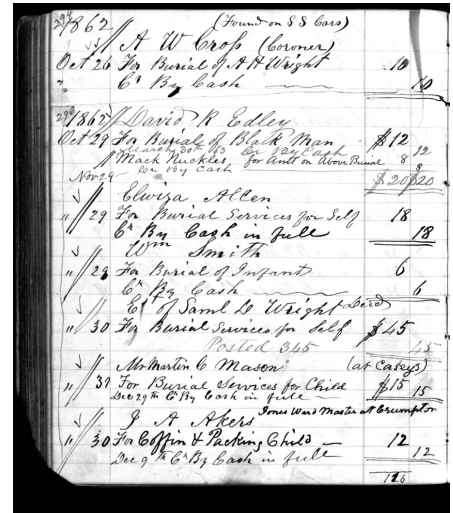 294 1862 // (Found on SS Cars)
A W Cross (Coroner)
Oct 26 For Burial of A H Wright 10
" Cr By Cash 10
296 1862 // David R Edley
Oct 29 For Burial of Black Man $12
March 30th 63 Cr By Cash 12
// Mack Nuckles for Amt on Above Burial 8
Nov 29 Cr By Cash 8
$20 $20
Elwiza Allen
" 29 For Burial Services for Self 18
Cr By Cash in full 18
Wm Smith
" 29 For Burial of Infant 6
Cr By Cash 6
Est of Saml L Wright Decd
" 30 For Burial Services for Self $45
Posted 345 45
Mr Martin C Mason (at Caseys)
" 31 For Burial Services for Child $15
Dec 29th Cr By Cash in full 15
Jones Ward Master at Crumpton
J A Akers
" 30 For Coffin & Packing Child 12
Dec 9th Cr By Cash in full 12
116